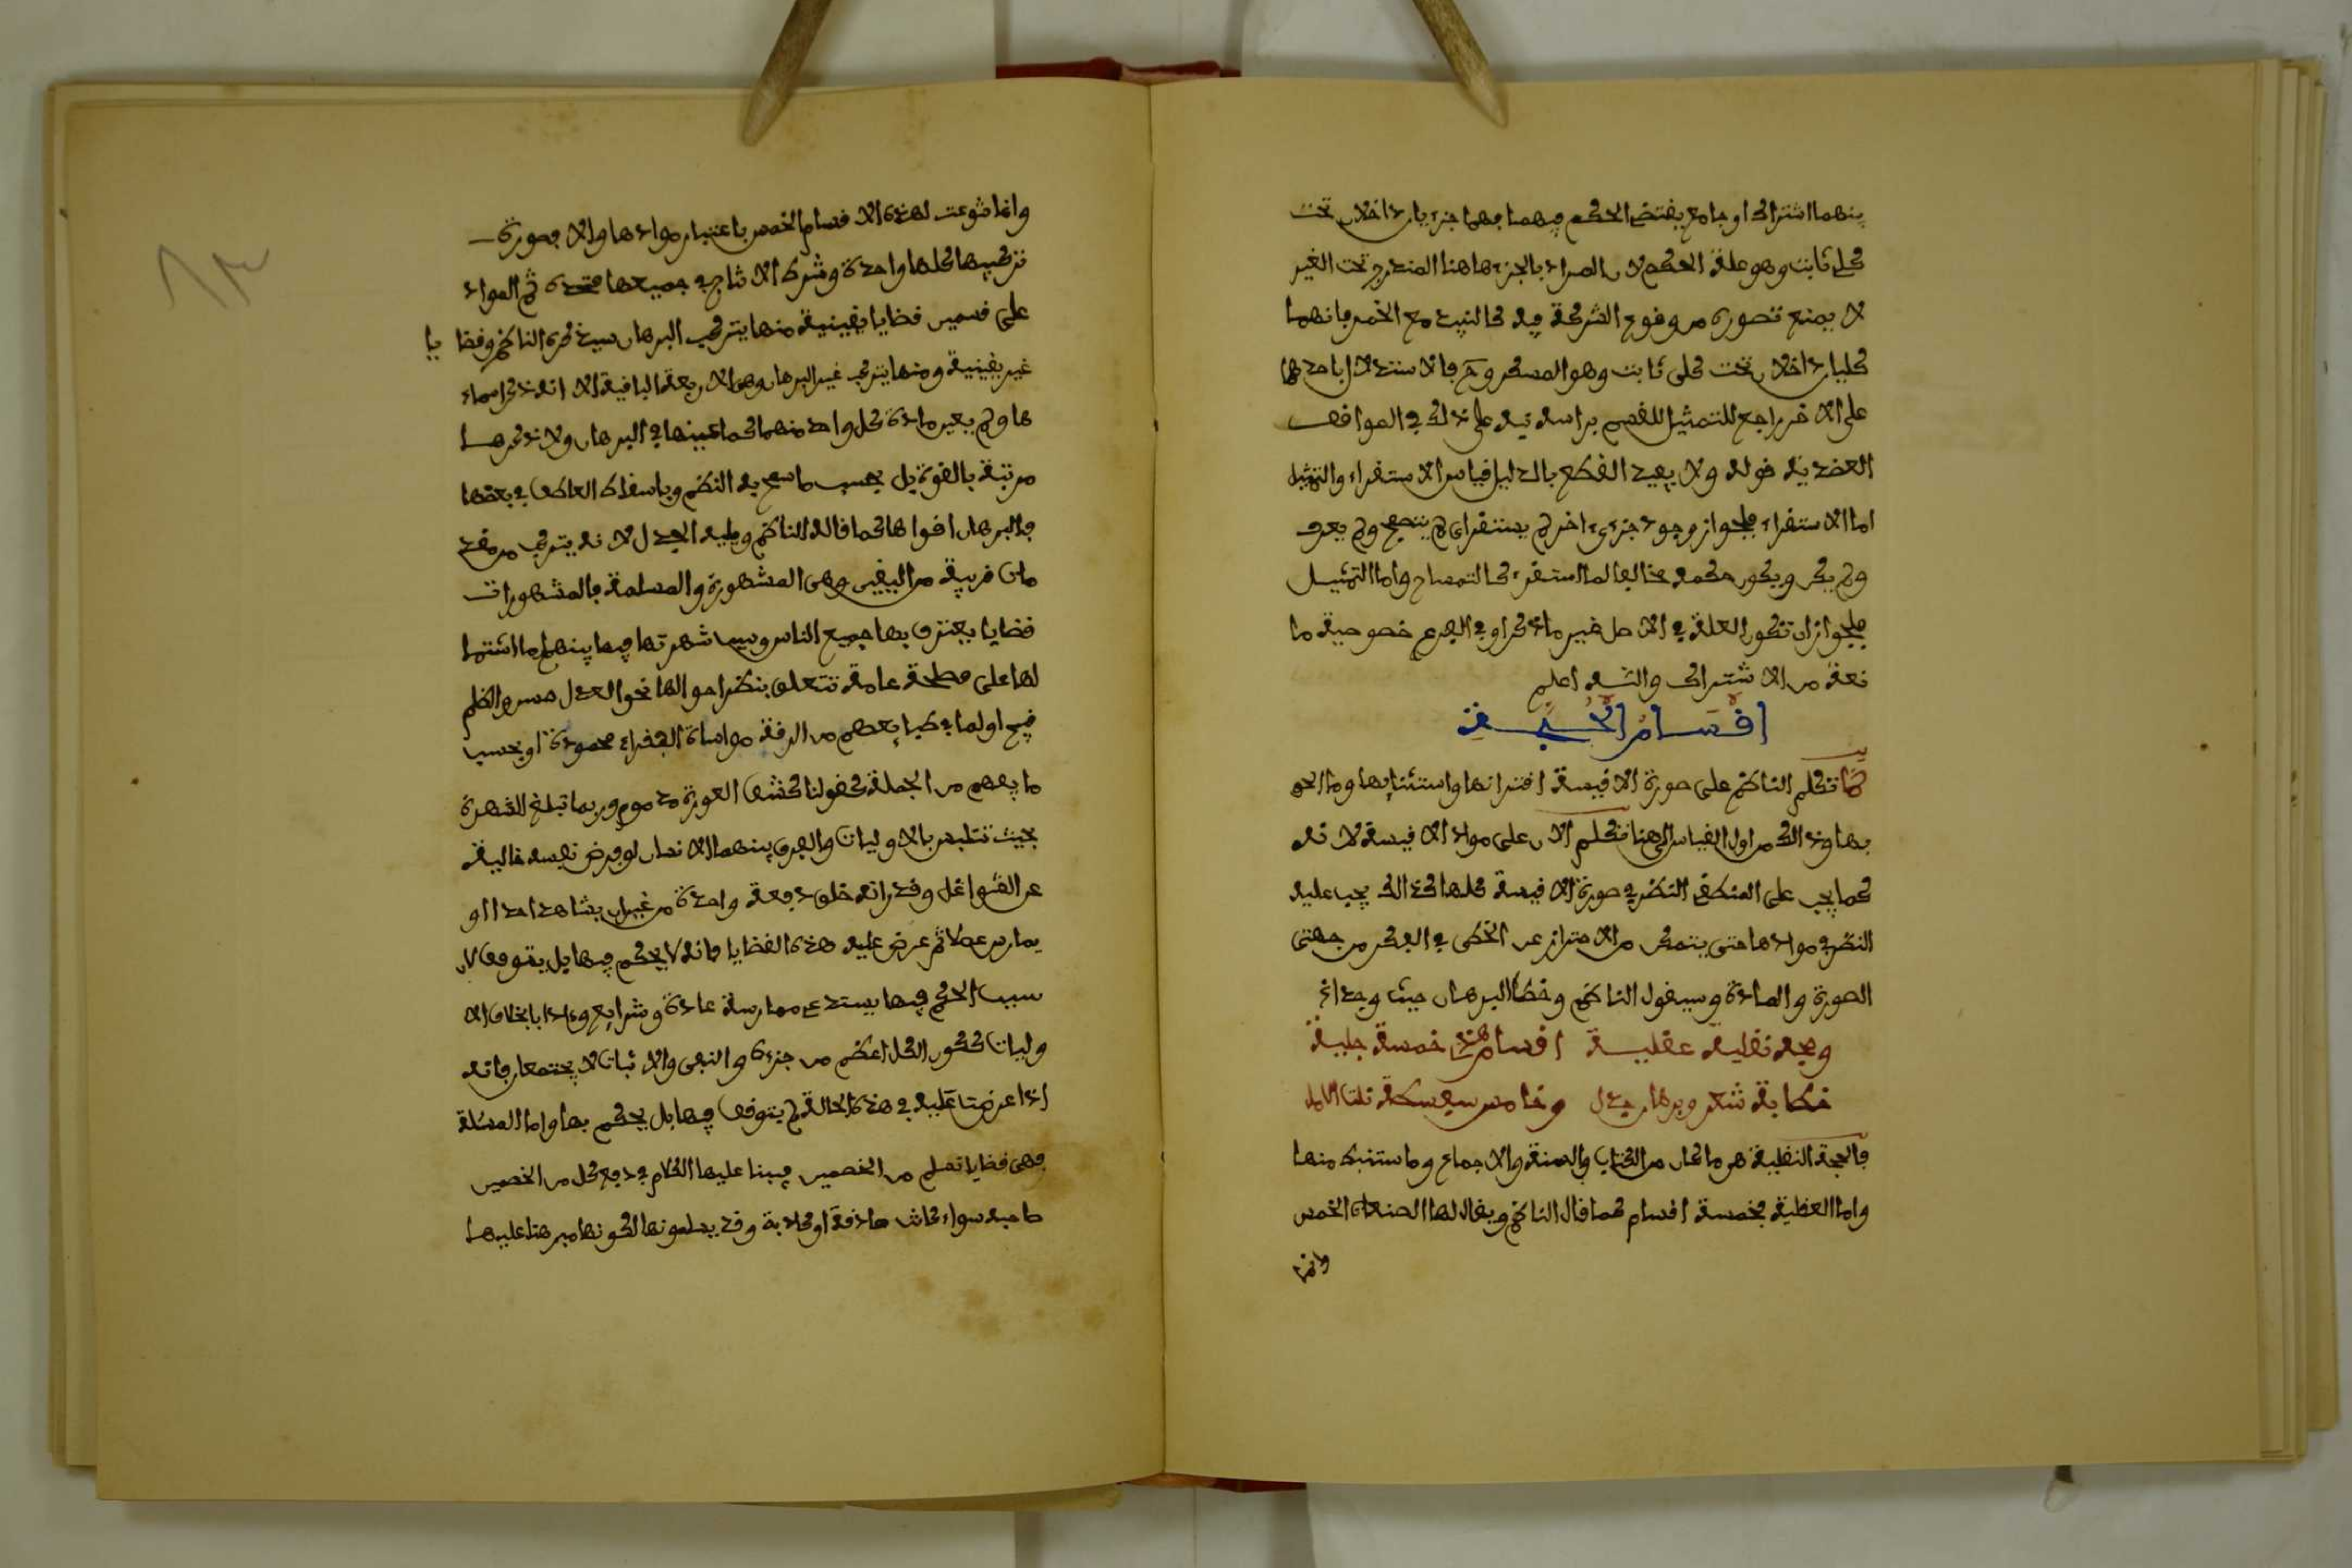 بينهما اشتراك او جامع يقتضى الحكم فيهما فهما جزءيان داخلان تحت
كلي ثابت وهو علة الحكم لان المراد بالجزء هاهنا المندرج تحت الغير
لا يمنع تصوره من وقوع الشركة فيه كالنبيذ مع الخمر فانهما
كليان داخلان تحت كلي ثابت وهو المسكر وح فالاستدلال باحدهما
على الاخر راجع للتمثيل للقسم براسه نبه على ذلك في المواقف
العضدية قوله ولا يفيد القطع بالدليل قياس الاستقراء والتمثيل
اما الاستقراء فلجواز وجود جزءى اخر لم يستقراى لم يتصفح ولم يعرف
ولم يكر ويكون حكمه مخالفا لما استقرء كالتمساح واما التمثيل
فلجواز ان تكون العلة في الاصل غير ما ذكر او في الفرع خصوصية ما
نعة من الاشتراك والله اعلم
اقسام الحجة
كما تكلم الناظم على صورة الاقيسة اقترانها واستثنايها وما الحق
بها وذالك من اول القياس الى هنا تكلم الان على مواد الاقيسة لانه
كما يجب على المنطقى النظر في صورة الاقيسة كلها كذالك يجب عليه
النظر في موادها حتى يتمكن من الاحتراز عن الخطى في الفكر من جهتى
الصورة والمادة وسيقول الناظم وخطا البرهان حيث وجدا الخ
وحجة نقلية عقلية اقسام هذى خمسة جلية
خطابة شعر وبرهان جدل وخامس سفسطة نلت الامل
فالحجة النقلية هو ما كان من الكتاب والسنة والاجماع وما استنبط منها
واما العقلية فخمسة اقسام كما قال الناظم ويقال لها الصنعات الخمس
وانما
وانما نوعت لهذه الاقسام الخمس باعتبار موادها والا فصورة
تركيبها كلها واحدة وشرط الانتاج في جميعها متحدة ثم المواد
على قسمين قضايا يقينية منها يتركب البرهان سيذكره الناظم وقضايا
غير يقينية ومنها يتركب غير البرهان وهو الاربعة الباقية الا انه ذكر اسماء
ها ولم يعين مادة كل واحد منهما كما عينها في البرهان ولا ذكرها
مرتبة بالقوة بل بحسب ما سمح به النظم وباسقاط العاطف في بعضها
فالبرهان اقواها كما قاله الناظم ويليه الجدل لانه يتركب من مقد
مات قريبة من اليقين وهى المشهورة والمسلمة فالمشهورات
قضايا يعترف بها جميع الناس وسبب شهرتها فيما بينهم اما اشتما
لها على مصلحة عامة تتعلق بنظر احوالها نحو العدل حسن والظلم
قبح او لما في طباعهم من الرقة مواساة الفقراء محمودة او بحسب
ما يعمهم من الجملة كقولنا كشف العورة مذموم وربما تبلغ الشهرة
بحيث تلتبس بالاوليات والفرق بينهما الانسان لو فرض نفسه خالية
عن الشواغل وقدر انه خلق دفعة واحدة من غير ان يشاهد احدا او
يمارس عملا ثم عرض عليه هذه القضايا فانه لا يحكم فيها بل يتوقف لان
سبب الحكم فيها يستدعى ممارسة عادة وشرايع وءادابا بخلاف الا
وليات ككون الكل اعظم من جزءه والنفى والاثبات لا يجتمعان فانه
اذا عرضت عليه في هذه الحالة لم يتوقف فيها بل يحكم بها واما المسلمة
فهى قضايا تسلم من الخصمين فيبنا عليها الكلام في دفع كل من الخصمين
صاحبه سواء كانت صادقة او كاذبة وقد يسلمونها لكونها مبرهنا عليها